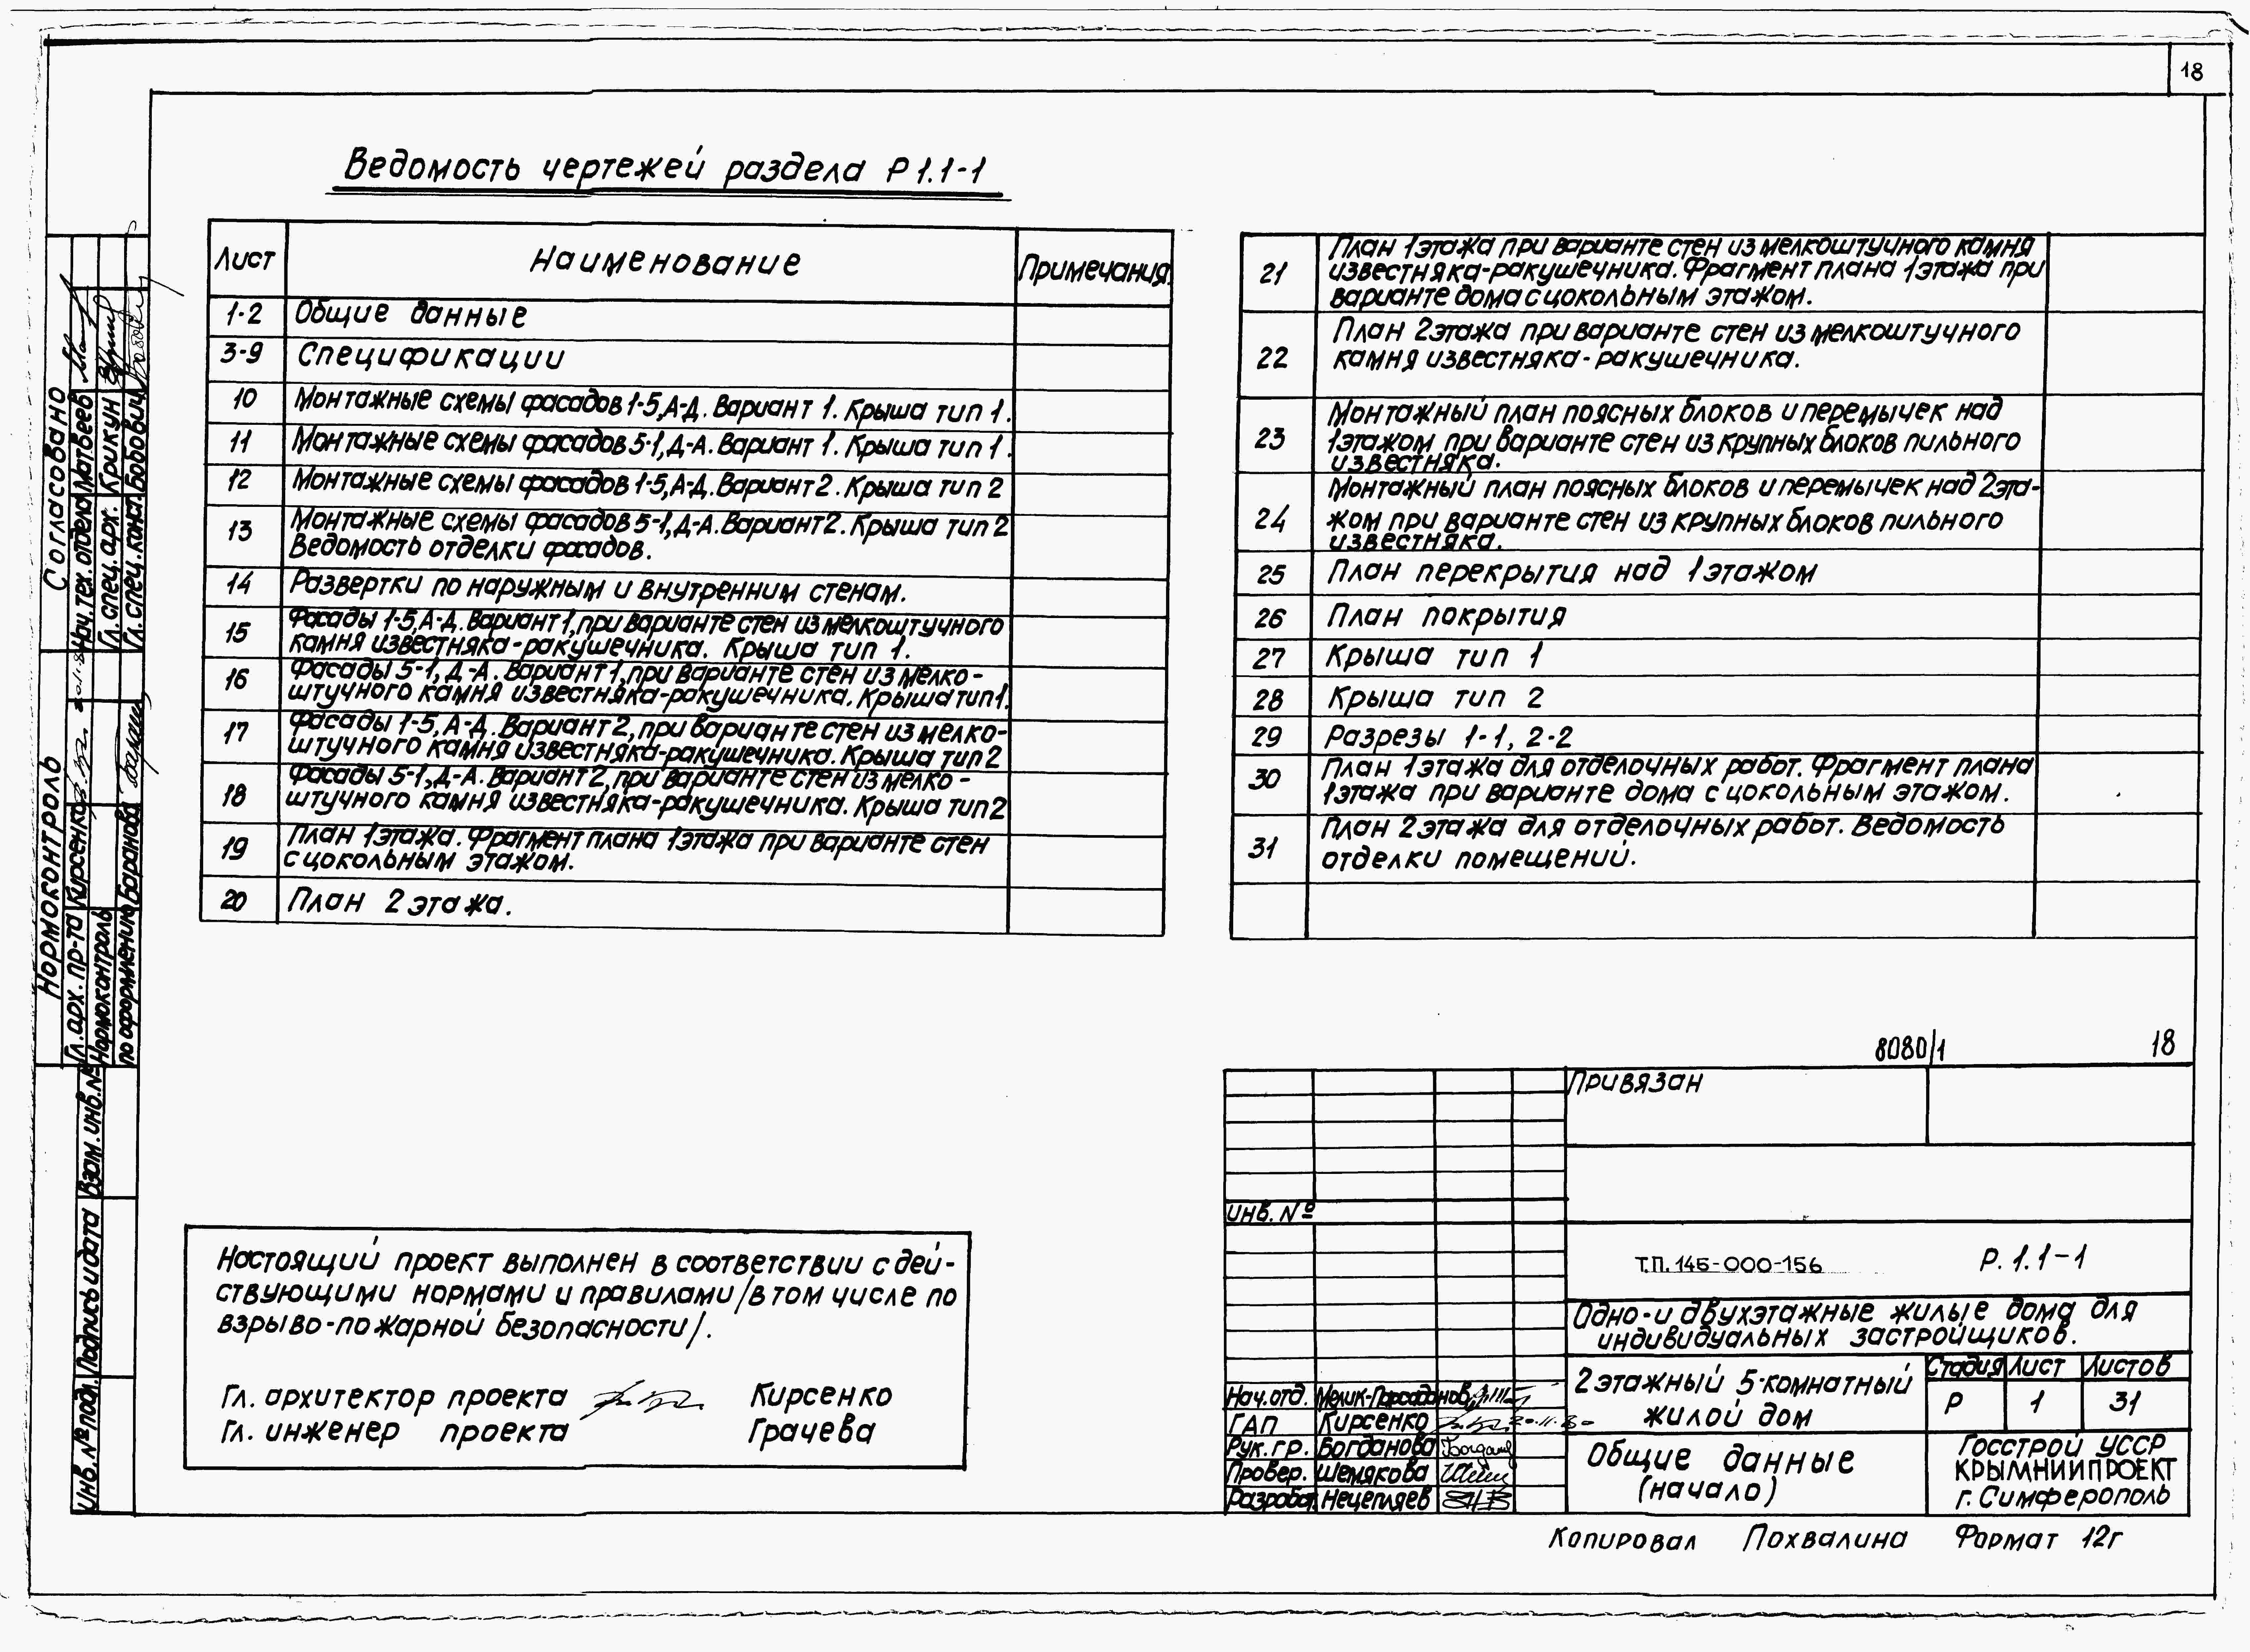 18
Ведомость чертежей раздела Р 1.1-1
Лист Наименование Примечания
1-2 Общие данные
3-9 Спецификации
10 Монтажные схемы фасадов 1-5, А-Д. Вариант 1. Крыша тип 1.
11 Монтажные схемы фасадов 5-1, Д-А. Вариант 1. Крыша тип 1.
12 Монтажные схемы фасадов 1-5, А-Д. Вариант 2. Крыша тип 2
13 Монтажные схемы фасадов 5-1, Д-А. Вариант 2. Крыша тип 2
Ведомость отделки фасадов.
14 Развертки по наружным и внутренним стенам.
15 Фасады 1-5, А-Д. Вариант 1, при варианте стен из мелкоштучного
камня известняка-ракушечника. Крыша тип 1.
16 Фасады 5-1, Д-А. Вариант 1, при варианте стен из мелко-
штучного камня известняка-ракушечника. Крыша тип 1.
17 Фасады 1-5, А-Д. Вариант 2, при варианте стен из мелко-
штучного камня известняка-ракушечника. Крыша тип 2
18 Фасады 5-1, Д-А. Вариант 2, при варианте стен из мелко-
штучного камня известняка-ракушечника. Крыша тип 2
19 План 1 этажа. Фрагмент плана 1 этажа при варианте стен
с цокольным этажом.
20 План 2 этажа.
21 План 1 этажа при варианте стен из мелкоштучного камня
известняка-ракушечника. Фрагмент плана 1 этажа при
варианте дома с цокольным этажом.
22 План 2 этажа при варианте стен из мелкоштучного
камня известняка-ракушечника.
23 Монтажный план поясных блоков и перемычек над
1 этажом при варианте стен из крупных блоков пильного
известняка.
24 Монтажный план поясных блоков и перемычек над 2 эта-
жом при варианте стен из крупных блоков пильного
известняка.
25 План перекрытия над 1 этажом
26 План покрытия
27 Крыша тип 1
28 Крыша тип 2
29 Разрезы 1-1, 2-2
30 План 1 этажа для отделочных работ. Фрагмент плана
1 этажа при варианте дома с цокольным этажом.
31 План 2 этажа для отделочных работ. Ведомость
отделки помещений.
Согласовано
Нач. тех. отдела Матвеев
Гл. спец. арх. Крикун
Гл. спец. конст. Бобович
Нормоконтроль
Гл. арх. пр-та Кирсенко
Нормоконтроль
по оформлению Баранова
Взам. инв. №
Подпись и дата
Инв. № подл.
Настоящий проект выполнен в соответствии с дей-
ствующими нормами и правилами /в том числе по
взрыво-пожарной безопасности/.
Гл. архитектор проекта Кирсенко
Гл. инженер проекта Грачева
8080/1 18
Привязан
инв. №
Т.П. 145-000-156 Р. 1.1-1
Одно- и двухэтажные жилые дома для
индивидуальных застройщиков.
2 этажный 5-комнатный
жилой дом
Стадия Лист Листов
Р 1 31
Нач. отд. Мелик-Парсаданов
ГАП Кирсенко
Рук. гр. Богданова
Провер. Шемякова
Разработ. Нецепляев
Общие данные
(начало)
Госстрой УССР
КРЫМНИИПРОЕКТ
г. Симферополь
Копировал Похвалина Формат 12г